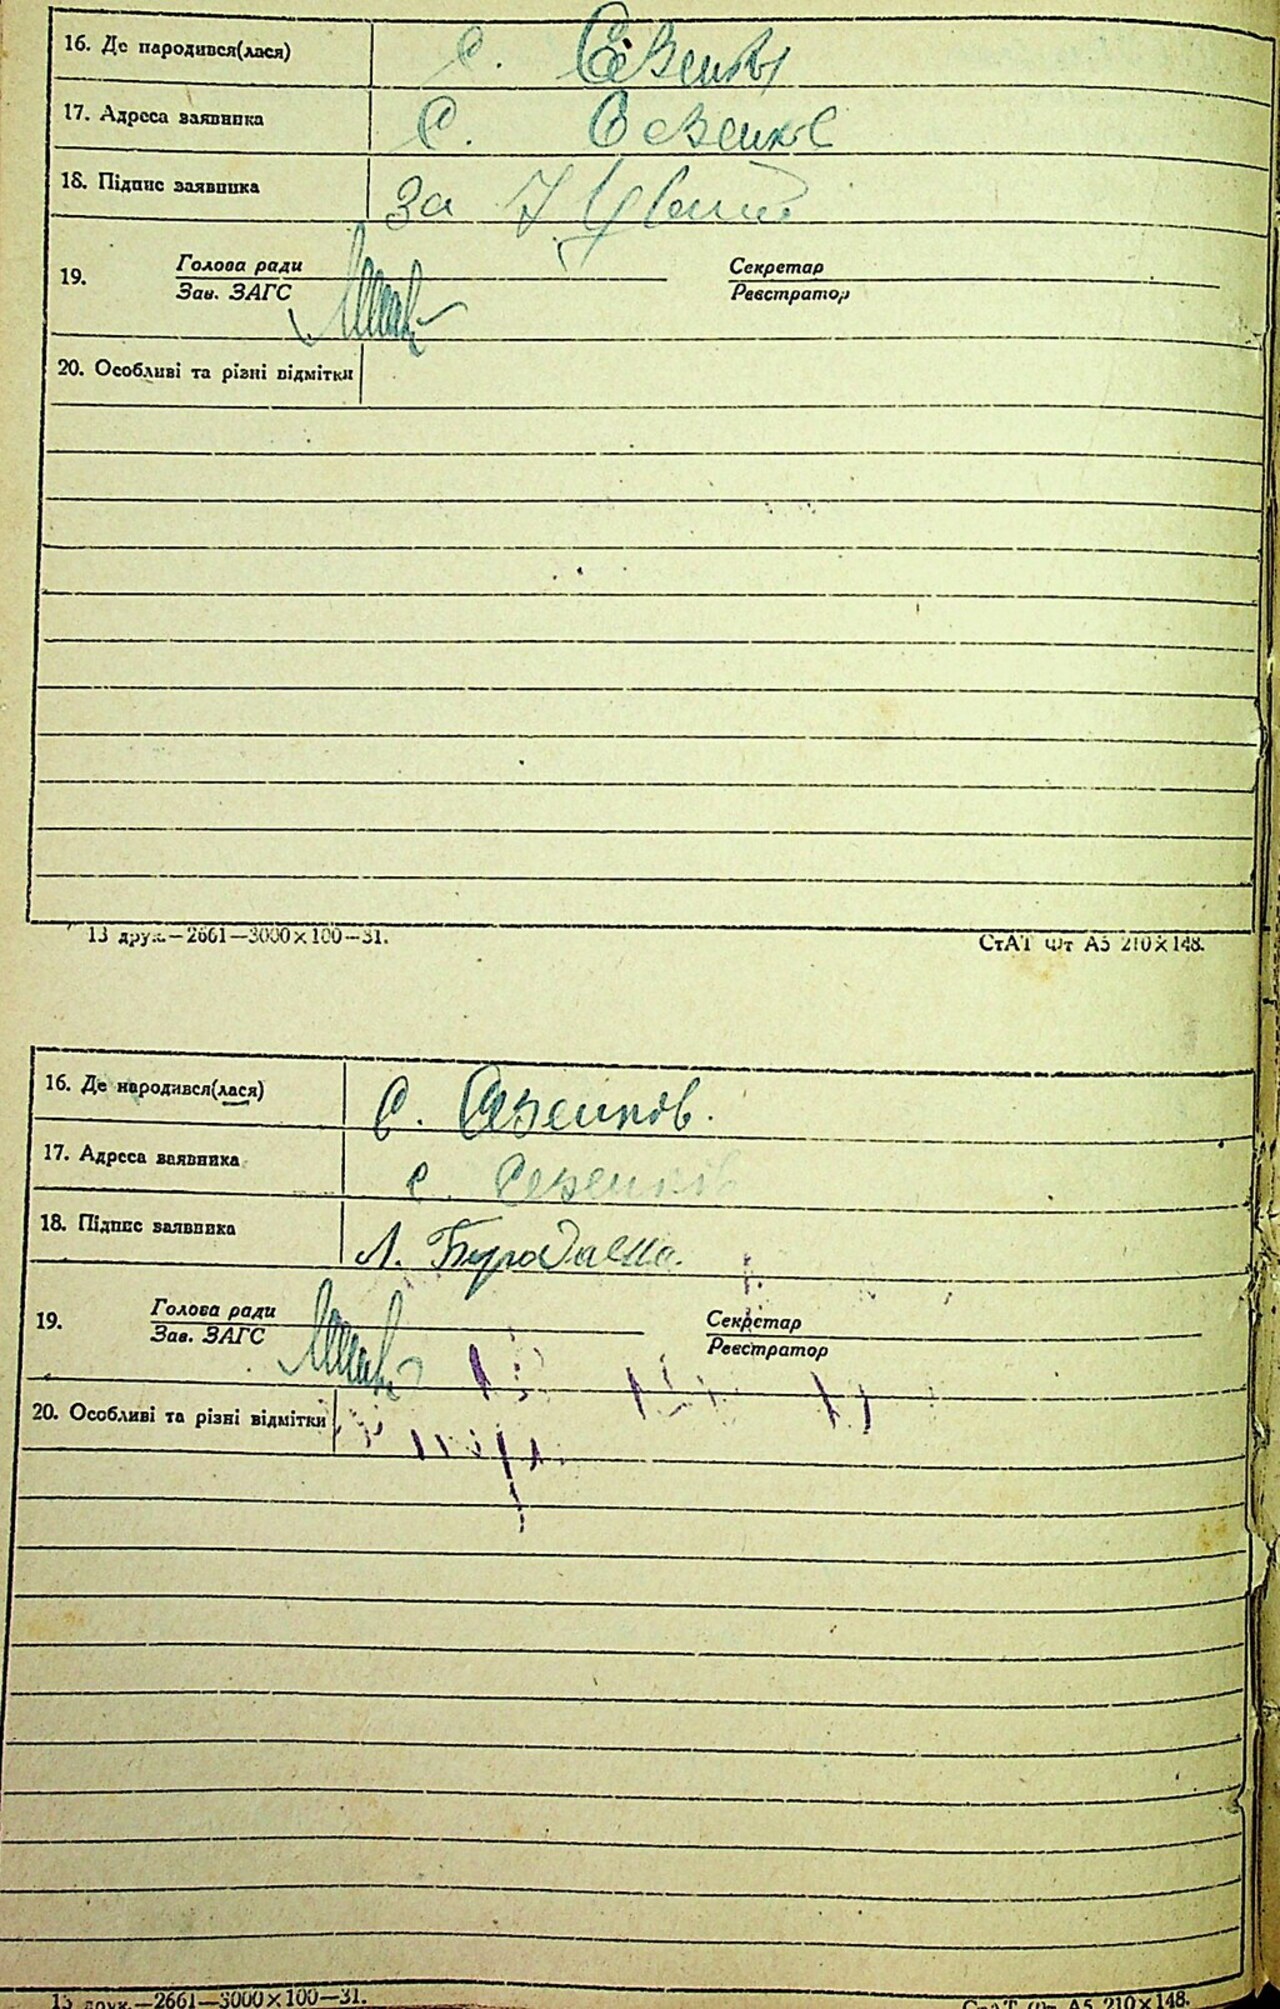 16. Де народився(лася) с. Севенків
17. Адреса заявника С. Севенків
18. Підпис заявника За
19. Голова ради Секретар
Зав. ЗАГС Реєстратор
20. Особливі та різні відмітки
13 друк.—2661—3000×100—31. СтАТ Фт А5 210×148.
16. Де народився(лася) С. Севенків.
17. Адреса заявника с. Севенків
18. Підпис заявника Л.
19. Голова ради Секретар
Зав. ЗАГС Реєстратор
20. Особливі та різні відмітки
13 друк.—2661—3000×100—31. СтАТ Фт А5 210×148.